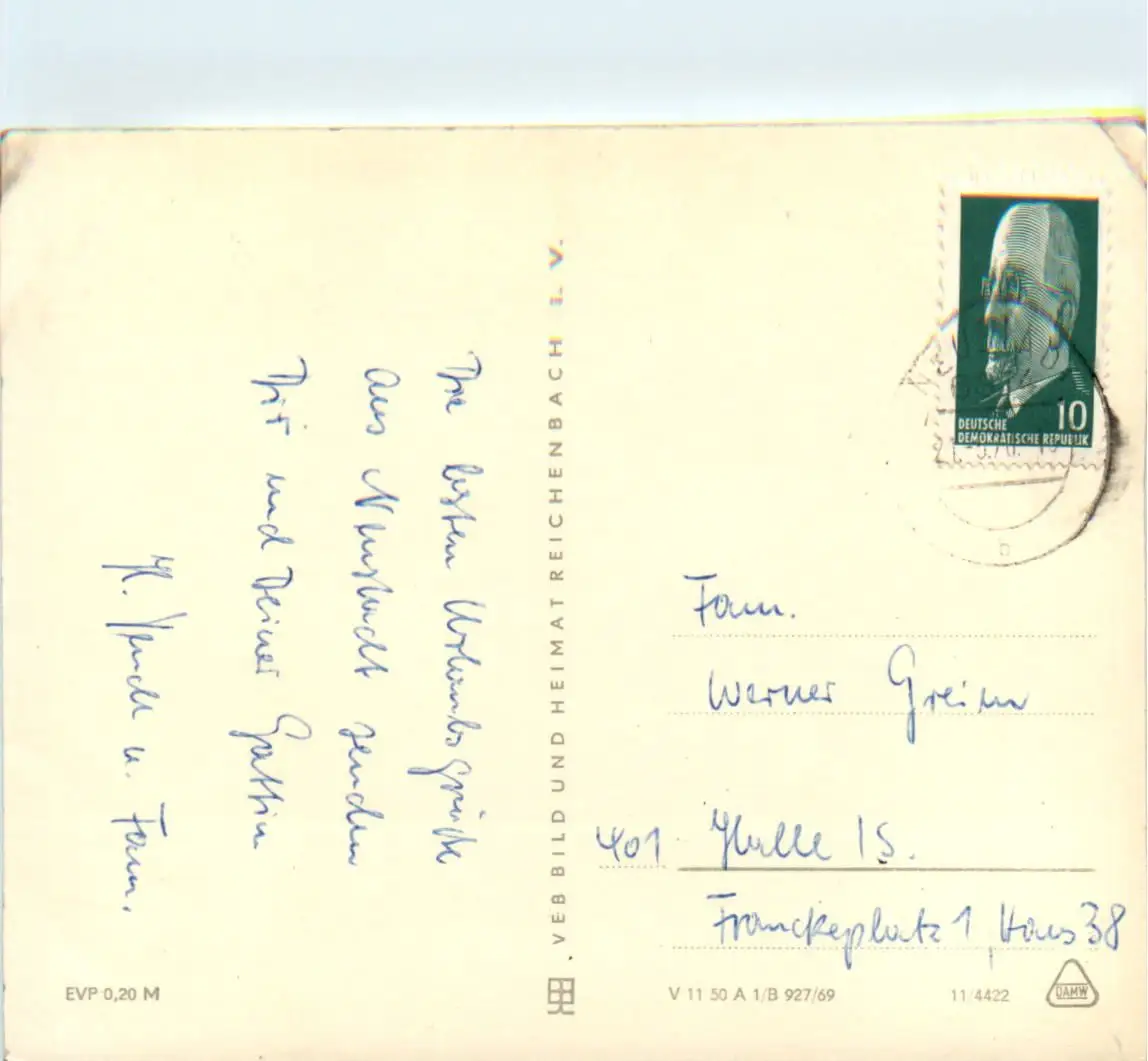 Die besten Urlaubsgrüße
aus Neustadt senden
Dir und Deiner Gattin
u. Fam.
VEB BILD UND HEIMAT REICHENBACH i. V.
10
DEUTSCHE
DEMOKRATISCHE REPUBLIK
Fam.
Werner Greim
401 Halle / S.
Franckeplatz 1, Haus 38
EVP 0,20 M
V 11 50 A 1/B 927/69
11/4422
DAMW